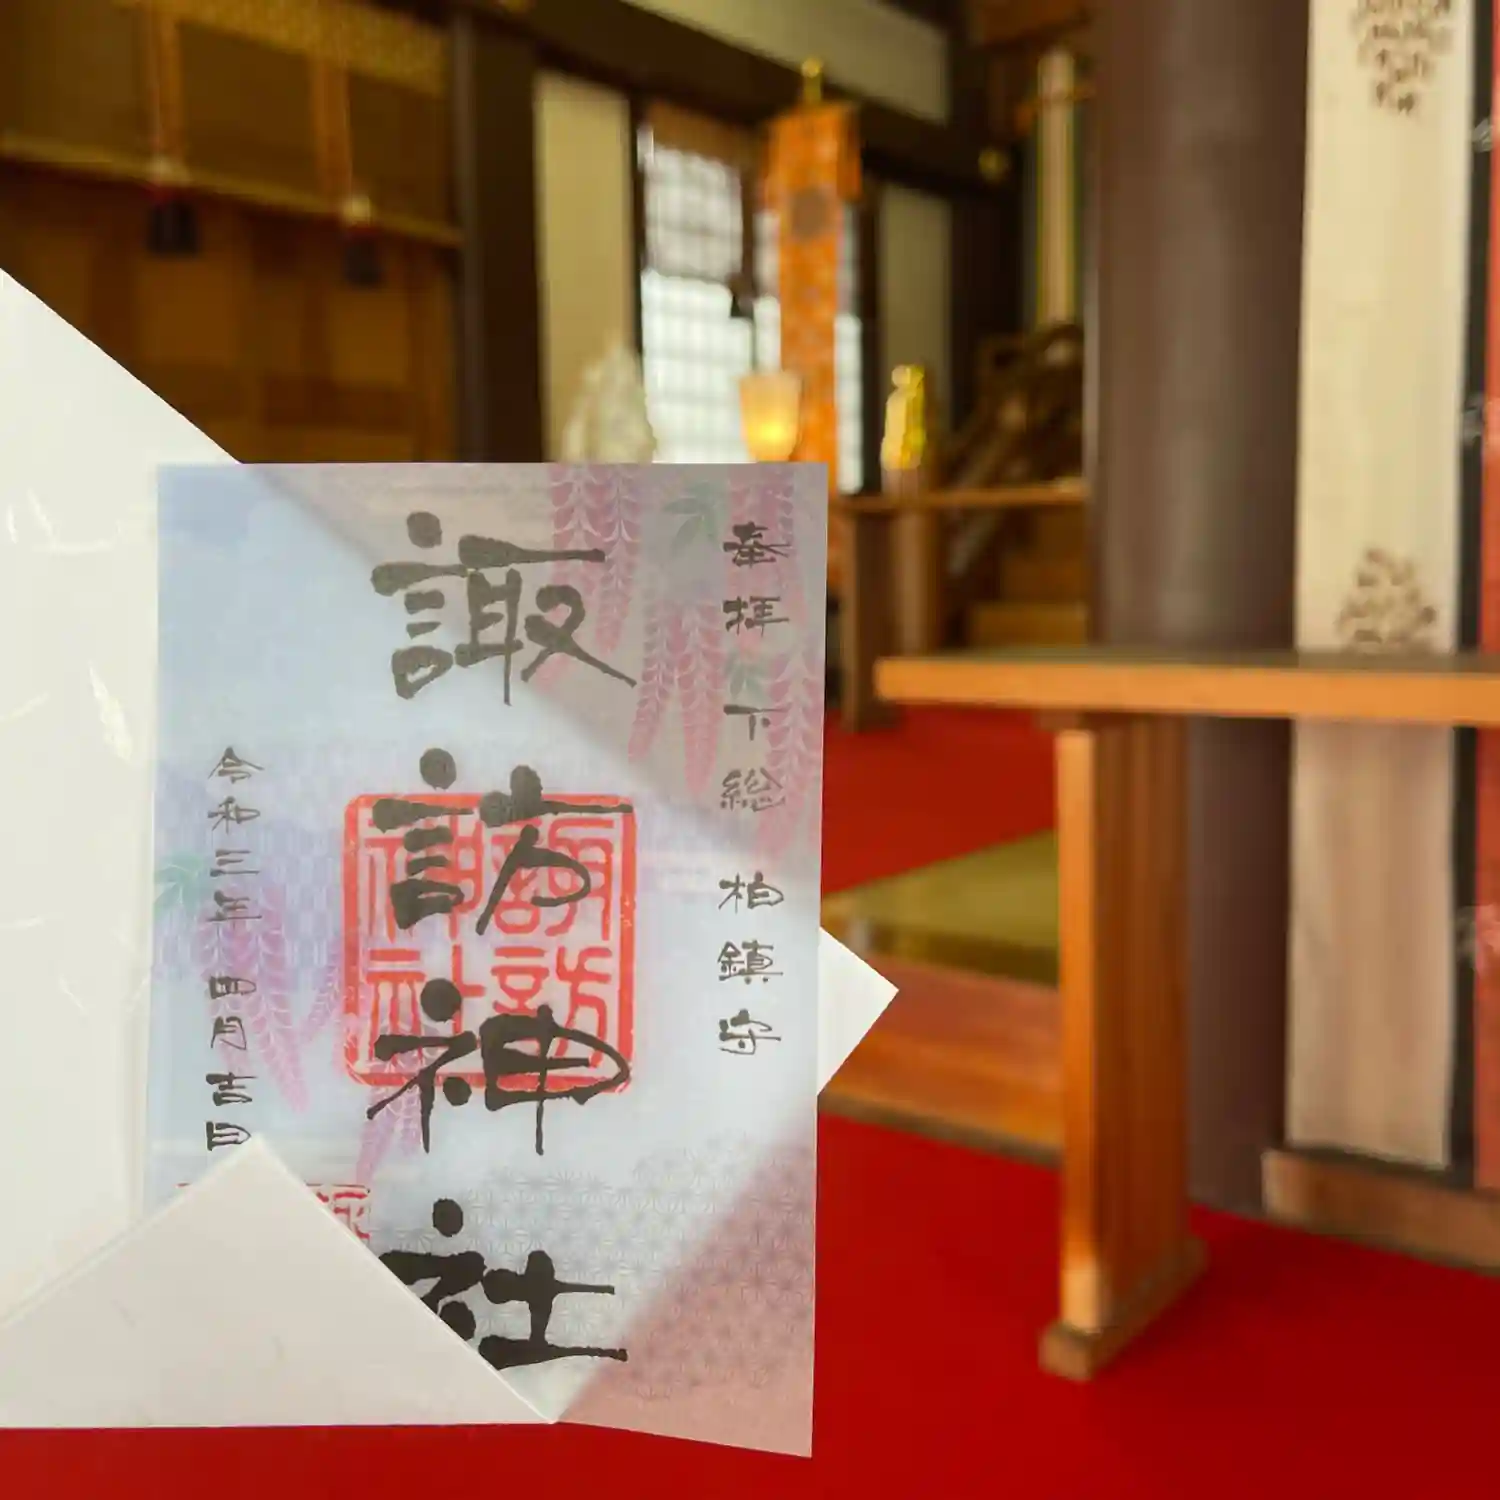 奉拝 下総 柏鎮守
諏訪神社
諏訪
神社
令和三年 四月吉日